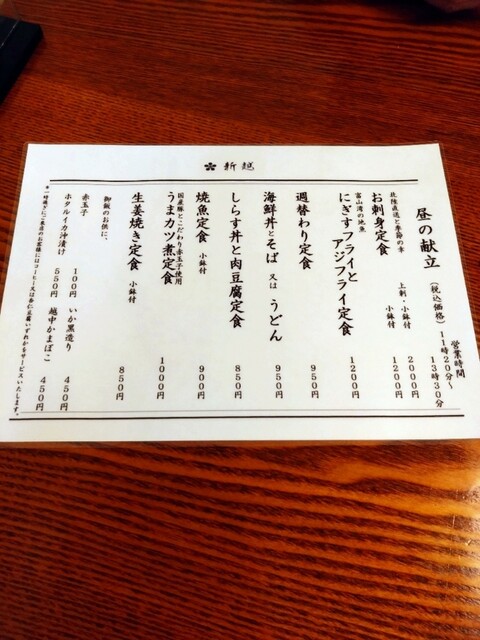 新越
昼の献立（税込価格）
営業時間
11時20分～
13時30分
北陸直送と季節の幸
お刺身定食
上刺・小鉢付 2000円
小鉢付 1200円
富山湾の地魚
にぎすフライと
アジフライ定食 1200円
週替わり定食 950円
海鮮丼とそば 又は うどん 950円
しらす丼と肉豆腐定食 850円
焼魚定食 小鉢付 900円
国産豚とこだわり赤玉子使用
うまカツ煮定食 1000円
生姜焼き定食 小鉢付 850円
御飯のお供に、
赤玉子 100円 いか黒造り 450円
ホタルイカ沖漬け 550円 越中かまぼこ 450円
＊一時過ぎにご来店のお客様にはコーヒー又は杏仁豆腐いずれかをサービスいたします。